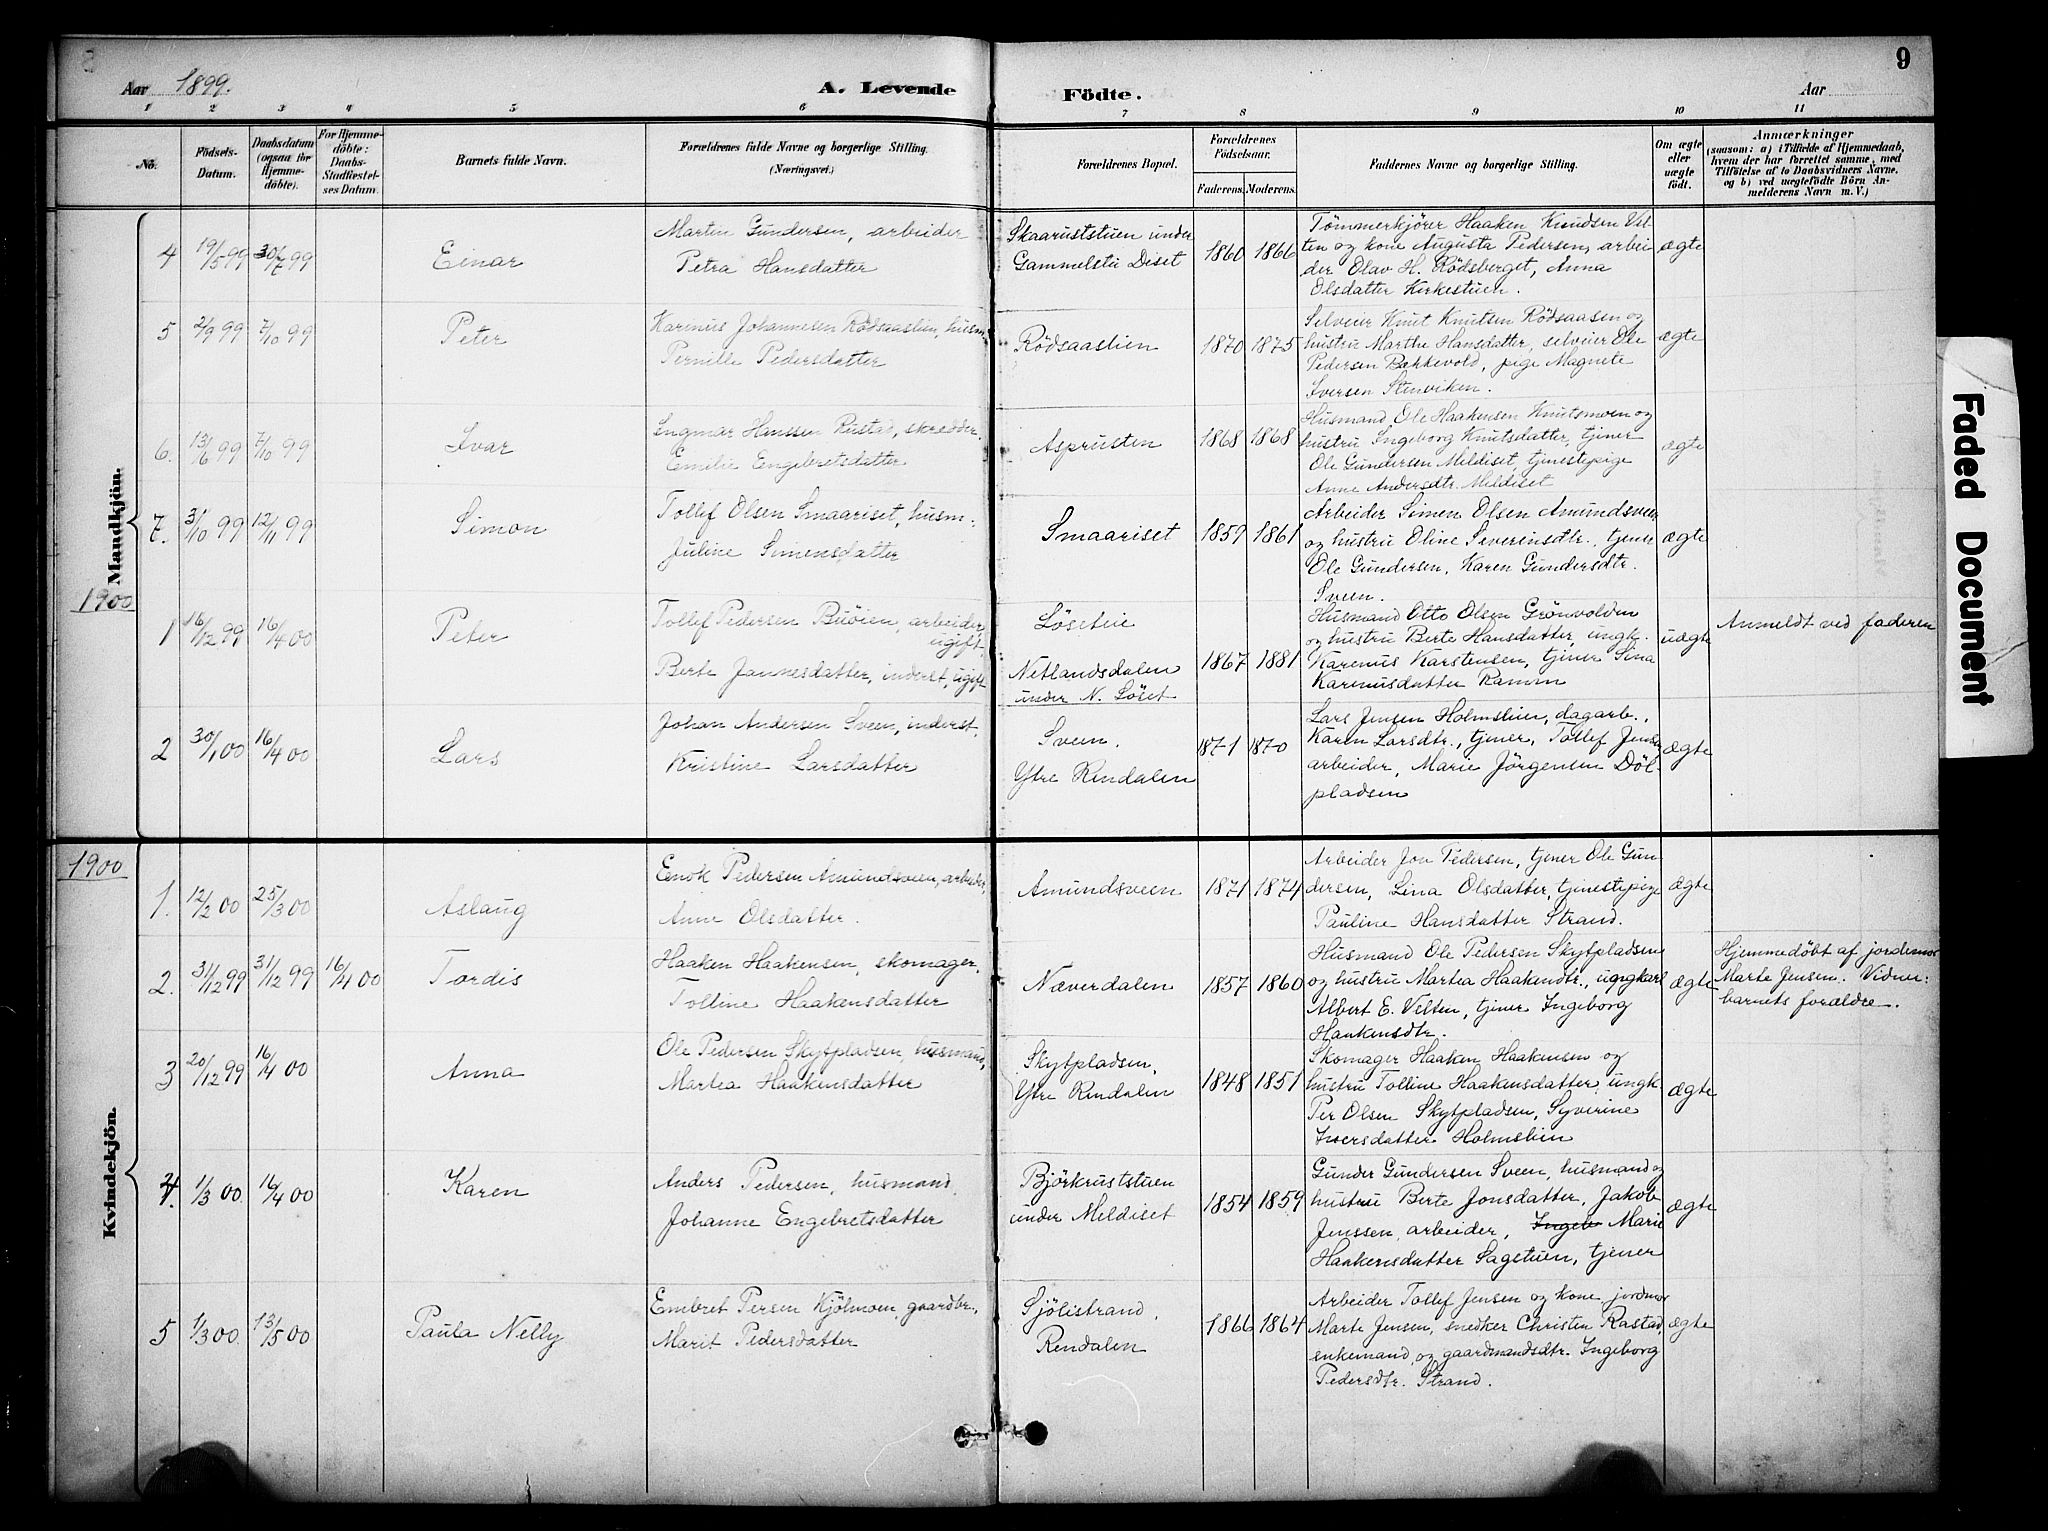 Aar 1899.
A. Levende
Födte.
Aar
9
1 2 3 4 5 6 7 8 9 10 11
No.
Födsels-
Datum.
Daabsdatum
(ogsaa for
Hjemme-
döbte).
For Hjemme-
döbte:
Daabs-
Stadfæstel-
ses Datum.
Barnets fulde Navn.
Forældrenes fulde Navne og borgerlige Stilling.
(Næringsvei.)
Forældrenes Bopæl.
Forældrenes
Födselsaar.
Faderens. Moderens.
Faddernes Navne og borgerlige Stilling.
Om ægte
eller
uægte
födt.
Anmærkninger
(saasom: a) i Tilfælde af Hjemmedaab,
hvem der har forrettet samme, med
Tilföielse af to Daabsvidners Navne,
og b) ved uægtefödte Börn An-
melderens Navn m. V.)
Mandkjön.
4 19/5 99 30/7 99
Einar
Martin Gundersen, arbeider
Petra Hansdatter
Skaaruststuen under
Gammelstu Diset
1860 1866
Tømmerkjører Haaken Knudsen Vel-
ten og kone Augusta Pedersen, arbei-
der Olav H. Rödsberget, Anna
Olsdatter Kirkestuen.
ægte
5 2/9 99 7/10 99
Peter
Karenus Johannesen Rødsaaslien, husm.
Pernille Pedersdatter
Rödsaaslien
1870 1875
Selveier Knut Knutsen Rødsaasen og
hustru Marthe Hansdatter, selveier Ole
Pedersen Bækkevold, pige Magnete
Iversen Stenviken.
ægte
6. 13/6 99 7/10 99
Ivar
Ingmar Hanssen Rustad, skrædder.
Emilie Engebretsdatter
Asprusten
1868 1868
Husmand Ole Haakensen Knutsmoen og
hustru Ingeborg Knutsdatter, tjener
Ole Gundersen Meldiset, tjenestepige
Anne Andersdtr. Meldiset
ægte
7. 31/10 99 12/11 99
Simon
Tollef Olsen Smaariset, husm.
Juline Simensdatter
Smaariset
1857 1861
Arbeider Simen Olsen Amundsveen
og hustru Oline Severinsdtr., tjener
Ole Gundersen, Karen Gundersdtr.
Sveen.
ægte
1900
1 16/12 99 16/4 00
Peter
Tollef Pedersen Buøien, arbeider,
ugift,
Berte Jannesdatter, inderst, ugift
Løsetlie
Netlandsdalen
under N. Löset
1867 1881
Husmand Otto Olsen Grönvolden
og hustru Berte Hansdatter, ungk.
Karenus Karstensen, tjener Lina
Karenusdatter Ramm
uægte
Anmeldt ved faderen
2 30/1 00 16/4 00
Lars
Johan Andersen Sveen, inderst.
Kristine Larsdatter
Sveen,
Ytre Rendalen
1871 1870
Lars Jensen Holmslien, dagarb.,
Karen Larsdtr., tjener, Tollef Jensen
arbeider, Marie Jörgensen Döl-
pladsen
ægte
1900
Kvindekjön.
1. 12/2 00 25/3 00
Aslaug
Enok Pedersen Amundsveen, arbeider,
Anne Olsdatter.
Amundsveen
1871 1874
Arbeider Jon Pedersen, tjener Ole Gun-
dersen, Lina Olsdatter, tjenestepige
Pauline Hansdatter Strand.
ægte
2. 31/12 99 31/12 99 16/4 00
Tordis
Haaken Haakensen, skomager,
Tolline Haakensdatter
Næverdalen
1857 1860
Husmand Ole Pedersen Skytpladsen
og hustru Martea Haakendtr., ungkarl
Albert E. Velten, tjener Ingeborg
Haakensdtr.
ægte
Hjemmedøbt af jordemor
Marte Jensen. Vidner:
barnets forældre.
3 20/12 99 16/4 00
Anna
Ole Pedersen Skytpladsen, husmand,
Martea Haakensdatter
Skytpladsen,
Ytre Rendalen
1848 1851
Skomager Haaken Haakensen og
hustru Tolline Haakensdatter, ungk.
Per Olsen Skytpladsen, Syverine
Iversdatter Holmslien
ægte
4. 1/3 00 16/4 00
Karen
Anders Pedersen, husmand,
Johanne Engebretsdatter
Björkruststuen
under Meldiset
1854 1859
Gunder Gundersen Sveen, husmand og
hustru Berte Jonsdatter, Jakob
Jenssen, arbeider, Ingeb Marie
Haakensdatter Sagstuen, tjener
ægte
5 1/3 00 13/5 00
Paula Nelly
Embret Persen Kjölmoen, gaardbr.,
Marit Pedersdatter
Sjölistrand,
Rendalen
1866 1864
Arbeider Tollef Jensen og kone jordmor
Marte Jensen, snedker Christen Rastad,
enkemand, og gaardmandsdtr. Ingeborg
Pedersdtr. Strand.
ægte
Faded Document